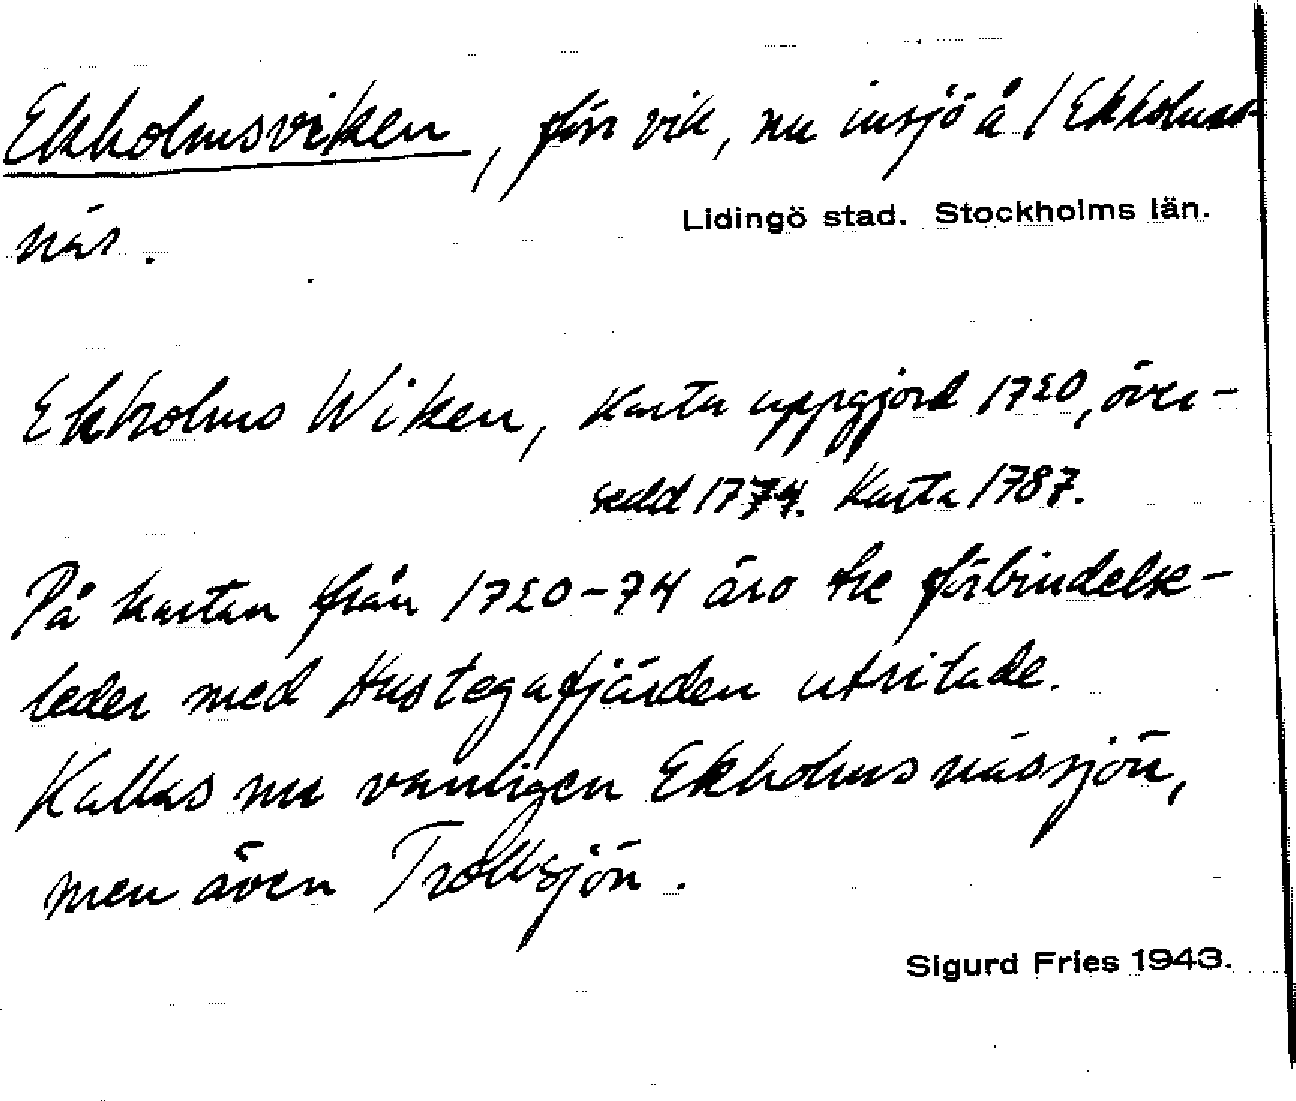 Ekholmsviken, förr vik, nu insjö å / Ekholms-
Lidingö stad. Stockholms län.
näs.
Ekholms Wiken, Karta uppgjord 1720, över-
sedd 1774. Karta 1787.
På kartan från 1720-74 äro tre förbindelse-
leder med Hustegafjärden utritade.
Kallas nu vanligen Ekholmsnässjön,
men även Trollsjön.
Sigurd Fries 1943.